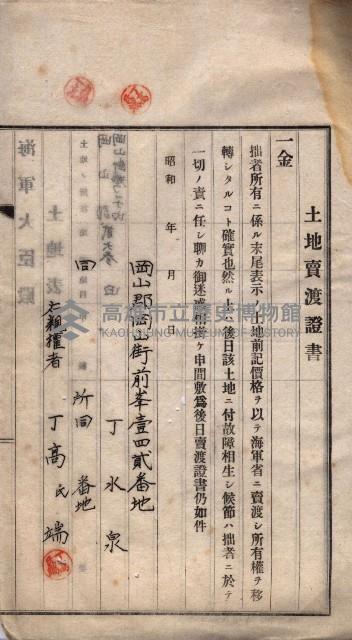 土地賣渡證書
一金
拙者所有ニ係ル末尾表示ノ土地前記價格ヲ以テ海軍省ニ賣渡シ所有權ヲ移
轉シタルコト確實也然ル上ハ後日該土地ニ付故障相生シ候節ハ拙者ニ於テ
一切ノ責ニ任シ聊カ御迷惑相掛ケ申間敷爲後日賣渡證書仍如件
昭和　年　月　日
岡山郡岡山街前峯壹四貳番地
丁水泉
同　所同　番地
右親權者　丁高氏端
海軍大臣殿
高雄市立歷史博物館
KAOHSIUNG MUSEUM OF HISTORY